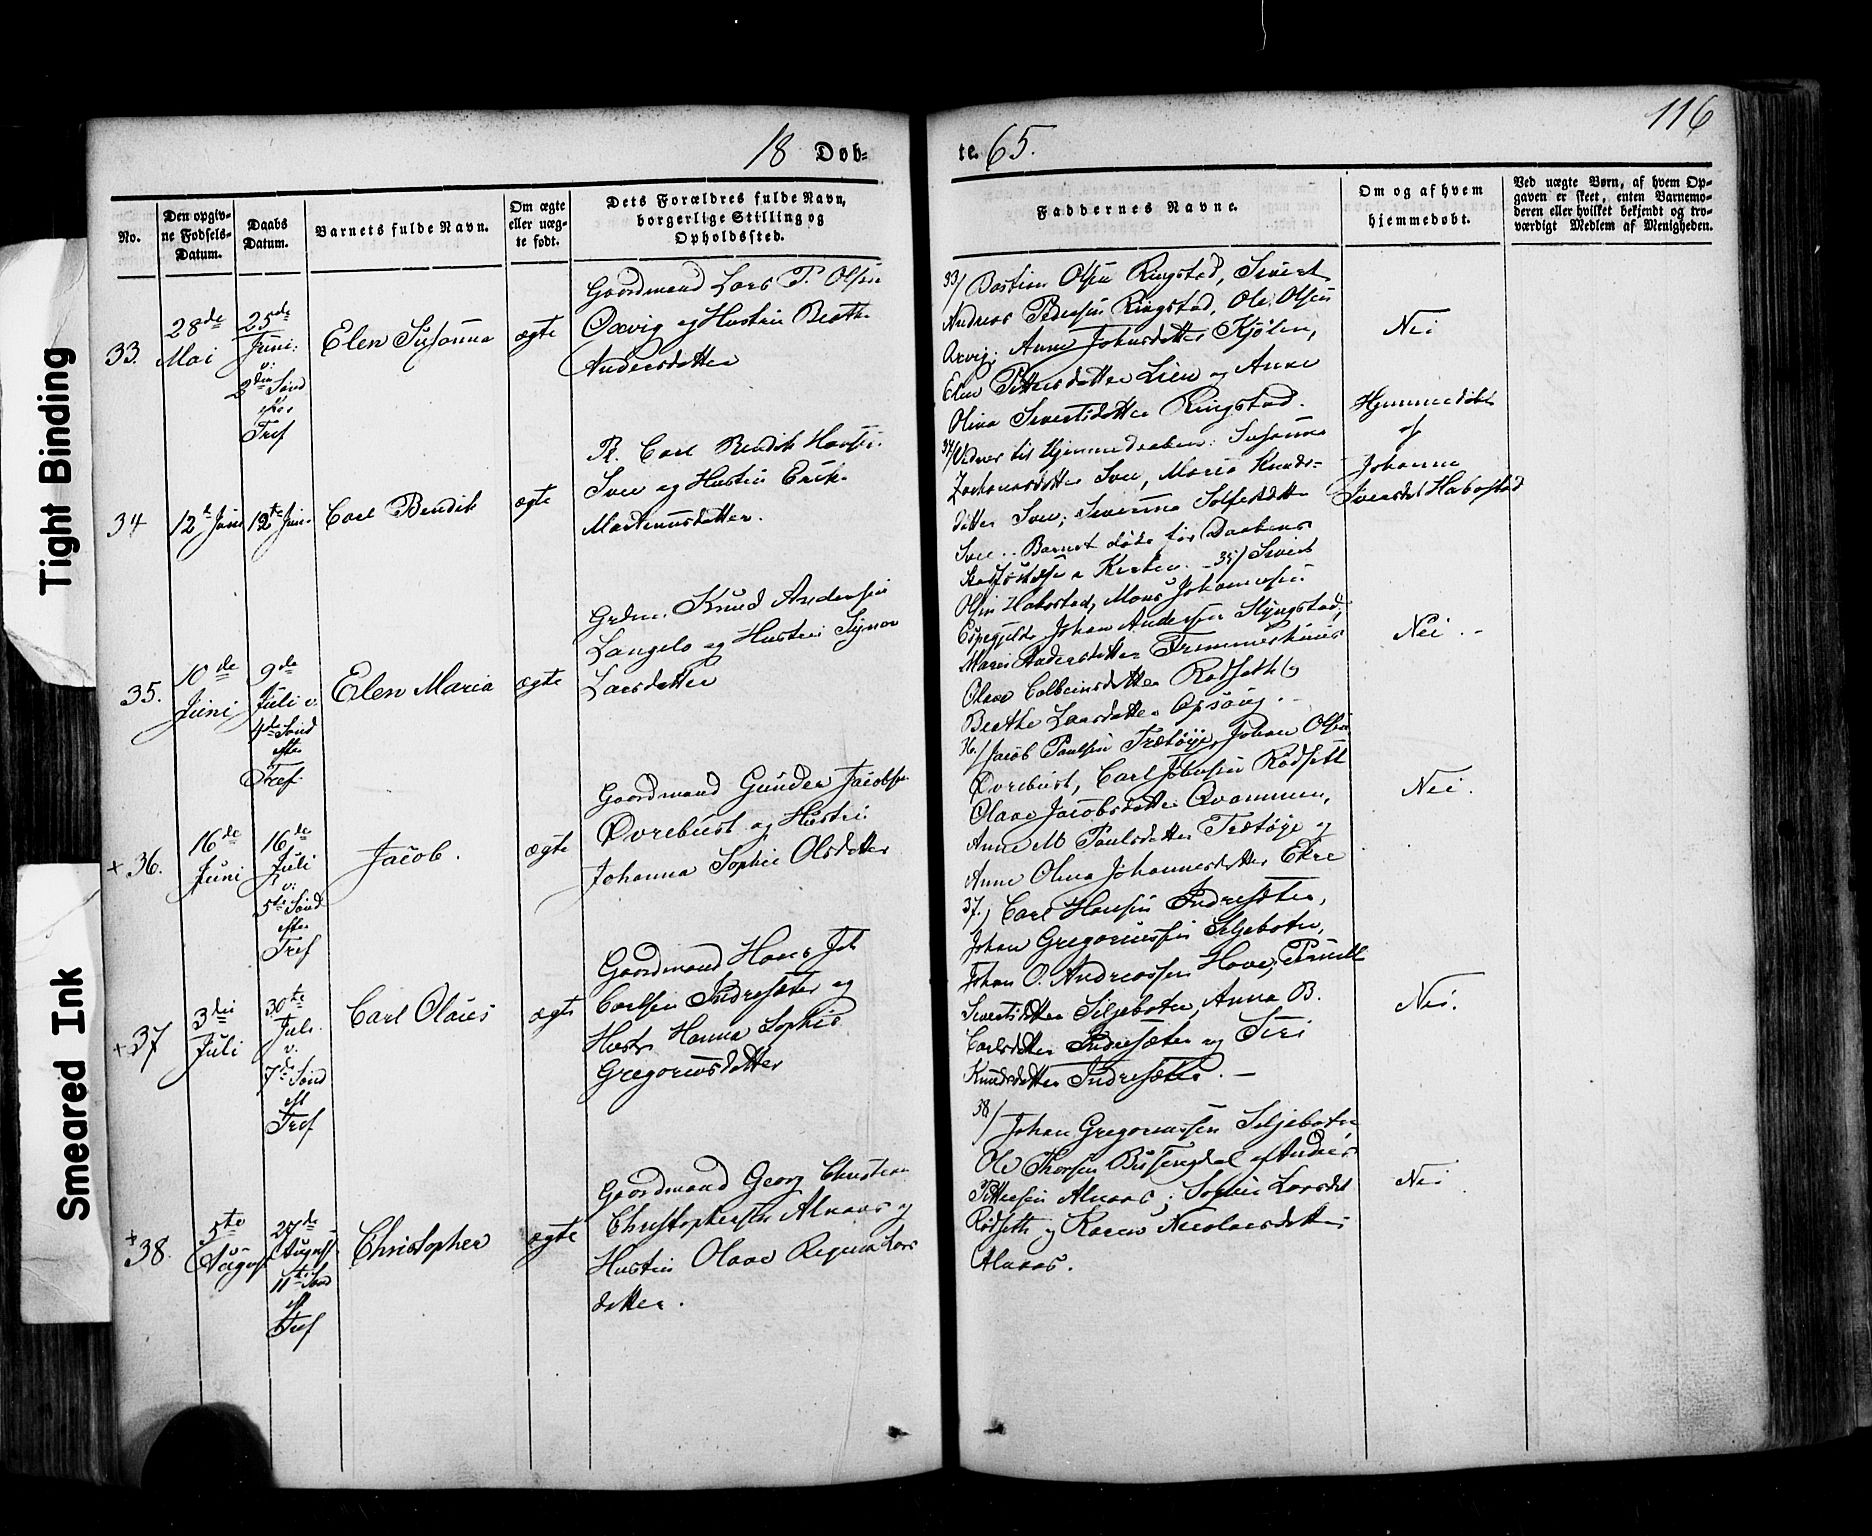 116
18 Døb-
te. 65.
No.
Den opgiv-
ne Fødsels-
Datum.
Daabs
Datum.
Barnets fulde Navn.
Om ægte
eller uæg-
te født.
Dets Forældres fulde Navn,
borgerlige Stilling og
Opholdssted.
Faddernes Navne.
Om og af hvem
hjemmedøbt.
Ved uægte Børn, af hvem Op-
gaven er skeet, enten Barnemo-
deren eller hvilket bekjendt og tro-
værdigt Medlem af Menigheden.
33.
28de
Mai
25de
Juni
v:
2den Sønd
efter
Tref
Elen Susanna
ægte
Gaardmand Lars P. Olsen
Oxvig og Hustru Berthe
Andersdatter
33/ Bastian Olsen Ringstad, Sivert
Andreas Pedersen Ringstad, Ole Olsen
Oxvig; Anne Johnsdatter Kjølen,
Elen Pettersdatter Lien og Anne
Olina Sivertsdatter Ringstad.
Nei
34
12te Juni
12te Juni
Carl Bendik
ægte
P. Carl Bendik Hansen
Sve og Hustru Erik
Martinusdatter.
34/ Vidner til Hjemmedaaben: Susanna
Zachariasdatter Sve, Maria Knuds-
datter Sve; Severina
Sve.. Barnet døde før Daabens
Stadfæstelse i Kirken. - 35/ Sivert
Hjemmedøbt
af
Johanne
Habostad
35.
10de
Juni
9de
Juli v.
4de Sønd
efter
Tref.
Elen Maria
ægte
Grdm. Knud Andersen
Langelo og Hustru Synov
Larsdatter
Olsen Habostad, Mons Johannesen
Espegjelde Johan Andersen
Maren Andersdatter
Olave Colbeinsdatter Rødseth og
Berthe Larsdatter Opsøvig. -
Nei. -
+36.
16de
Juni
16de
Juli
v:
5te Sønd
efter
Tref
Jacob.
ægte
Gaardmand Gunder Jacobsen
Øvrebust og Hustru
Johanna Sophie Olsdatter
36./ Jacob Paulsen Trætøye, Johan Olsen
Øvrebust, Carl Johnsen Rødseth
Olave Jacobsdatter Qvammen,
Anne M Paulsdatter Trætøye og
Anne Olina Johannesdatter Ekre
Nei.
+37
3die
Juli
30te
Juli.
v.
7de Sønd
eft
Tref
Carl Olaus
ægte
Gaardmand Hans Joh
Carlsen Indresæter og
Hustr Hanna Sophie
Gregoriusdatter
37./ Carl Hansen Indresæter,
Johan Gregoriussen Siljebotn,
Johan O. Andreassen Hove;
Sivertsdatter Siljebotn, Anna B.
Carlsdatter Indresæter og Siri
Knudsdatter Indresæter. -
Nei.
+38.
5te
August
27de
August
11te Sønd
eft
Tref
Christopher
ægte
Gaardmand Georg Christian
Christophersen Alnæs og
Hustru Olave Regine Lars
datter.
38/ Johan Gregoriussen Siljebotn
Ole Thorsen Andreas
Pettersen Alnæs; Sophie Larsdat
Rødseth og Karen Nicolaisdatter
Alnæs.
Nei
Tight Binding
Smeared Ink